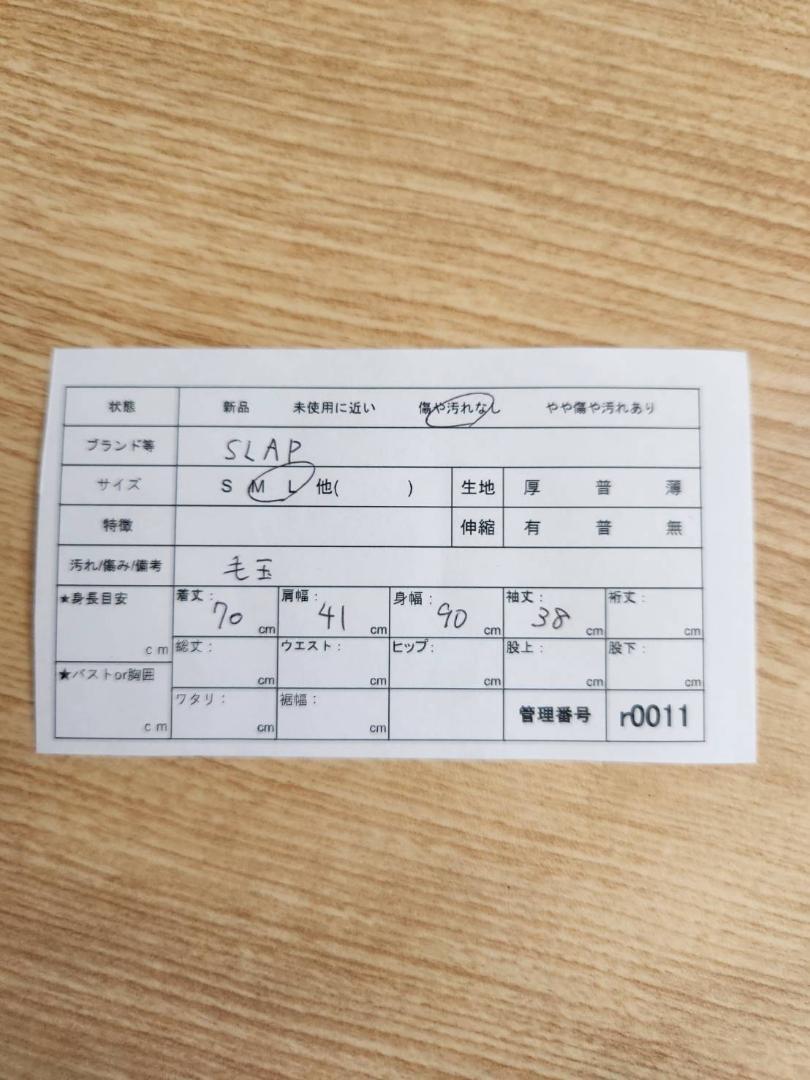 状態 新品 未使用に近い 傷や汚れなし やや傷や汚れあり
ブランド等 SLAP
サイズ S M L 他( ) 生地 厚 普 薄
特徴 伸縮 有 普 無
汚れ/傷み/備考 毛玉
★身長目安 cm 着丈: 70 cm 肩幅: 41 cm 身幅: 90 cm 袖丈: 38 cm 裄丈: cm
総丈: cm ウエスト: cm ヒップ: cm 股上: cm 股下: cm
★バストor胸囲 cm ワタリ: cm 裾幅: cm 管理番号 r0011